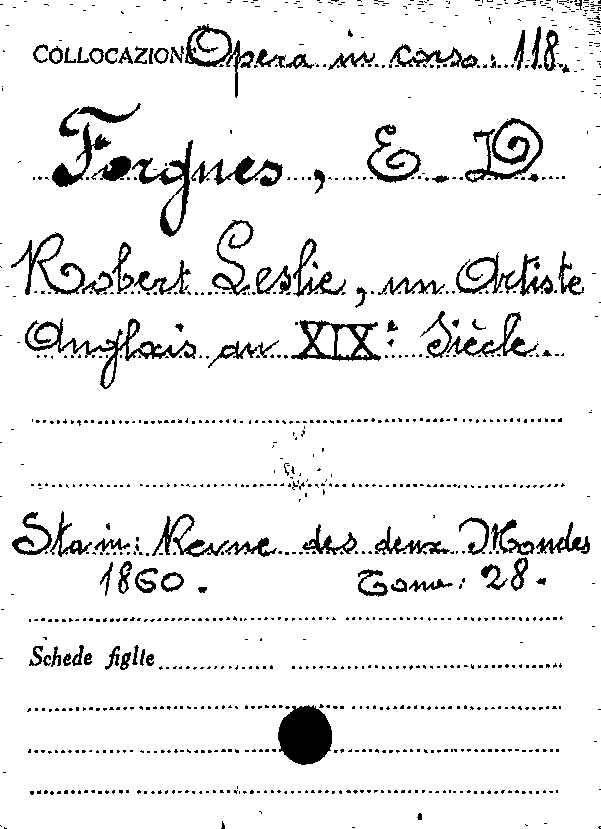 COLLOCAZIONE Opera in corso: 118.
Forgues, E. D.
Robert Leslie, un Artiste
Anglais au XIXe Siècle.
Sta in: Revue des deux Mondes
1860. Tome: 28.
Schede figlie